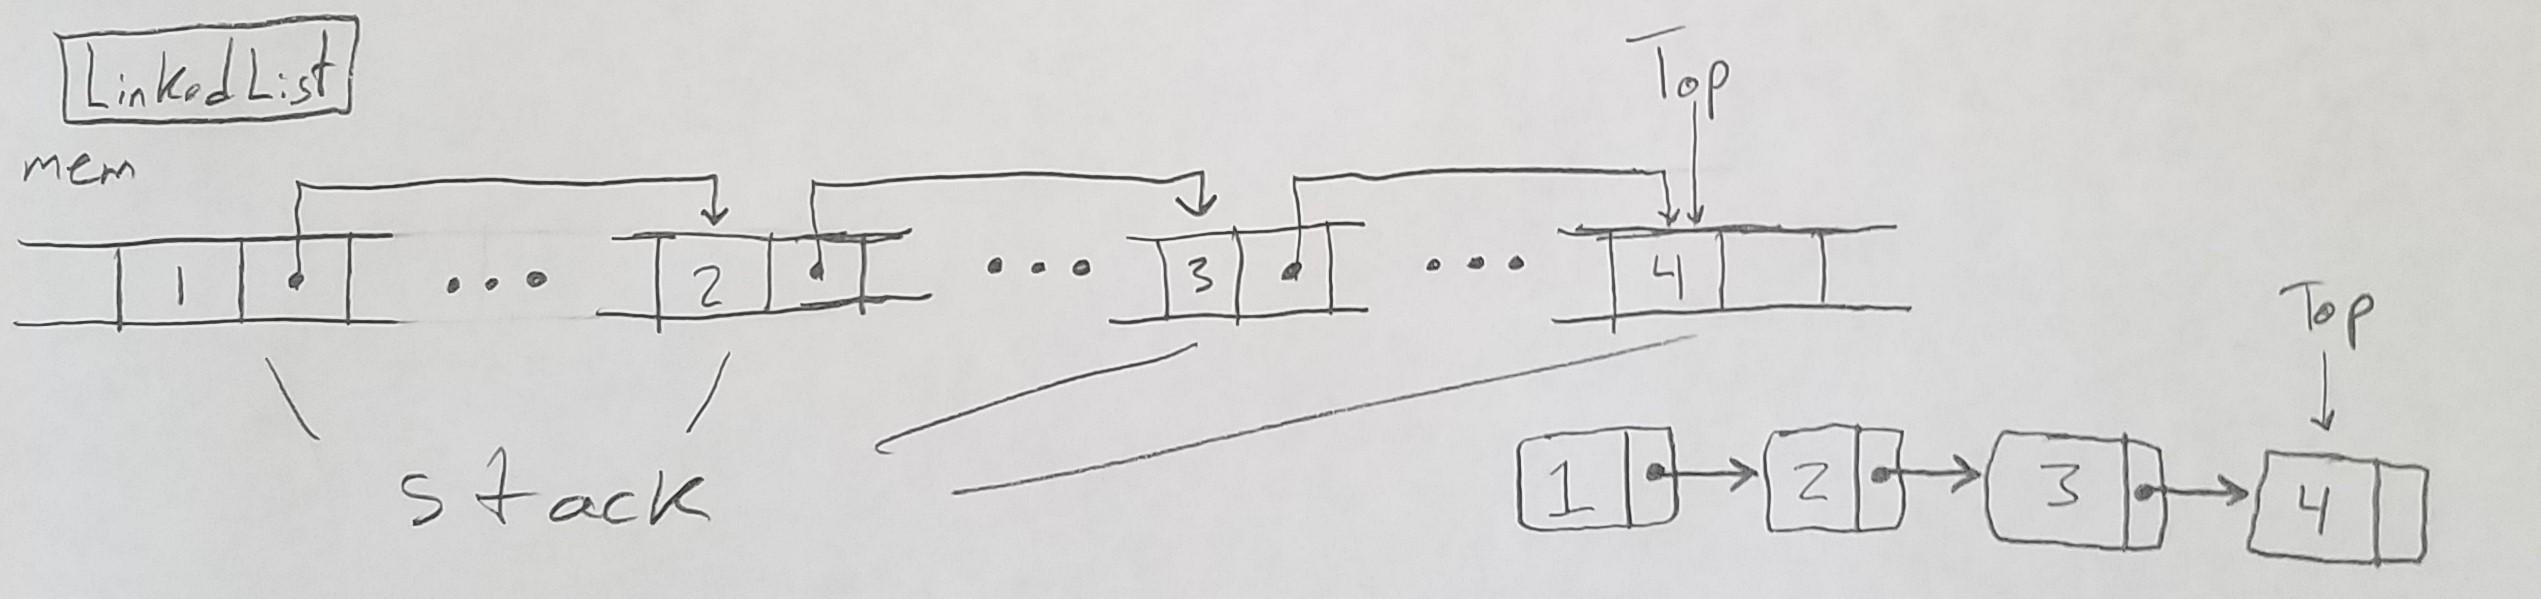 LinkedList
mem
Top
1 2 3 4
stack
Top
1 2 3 4